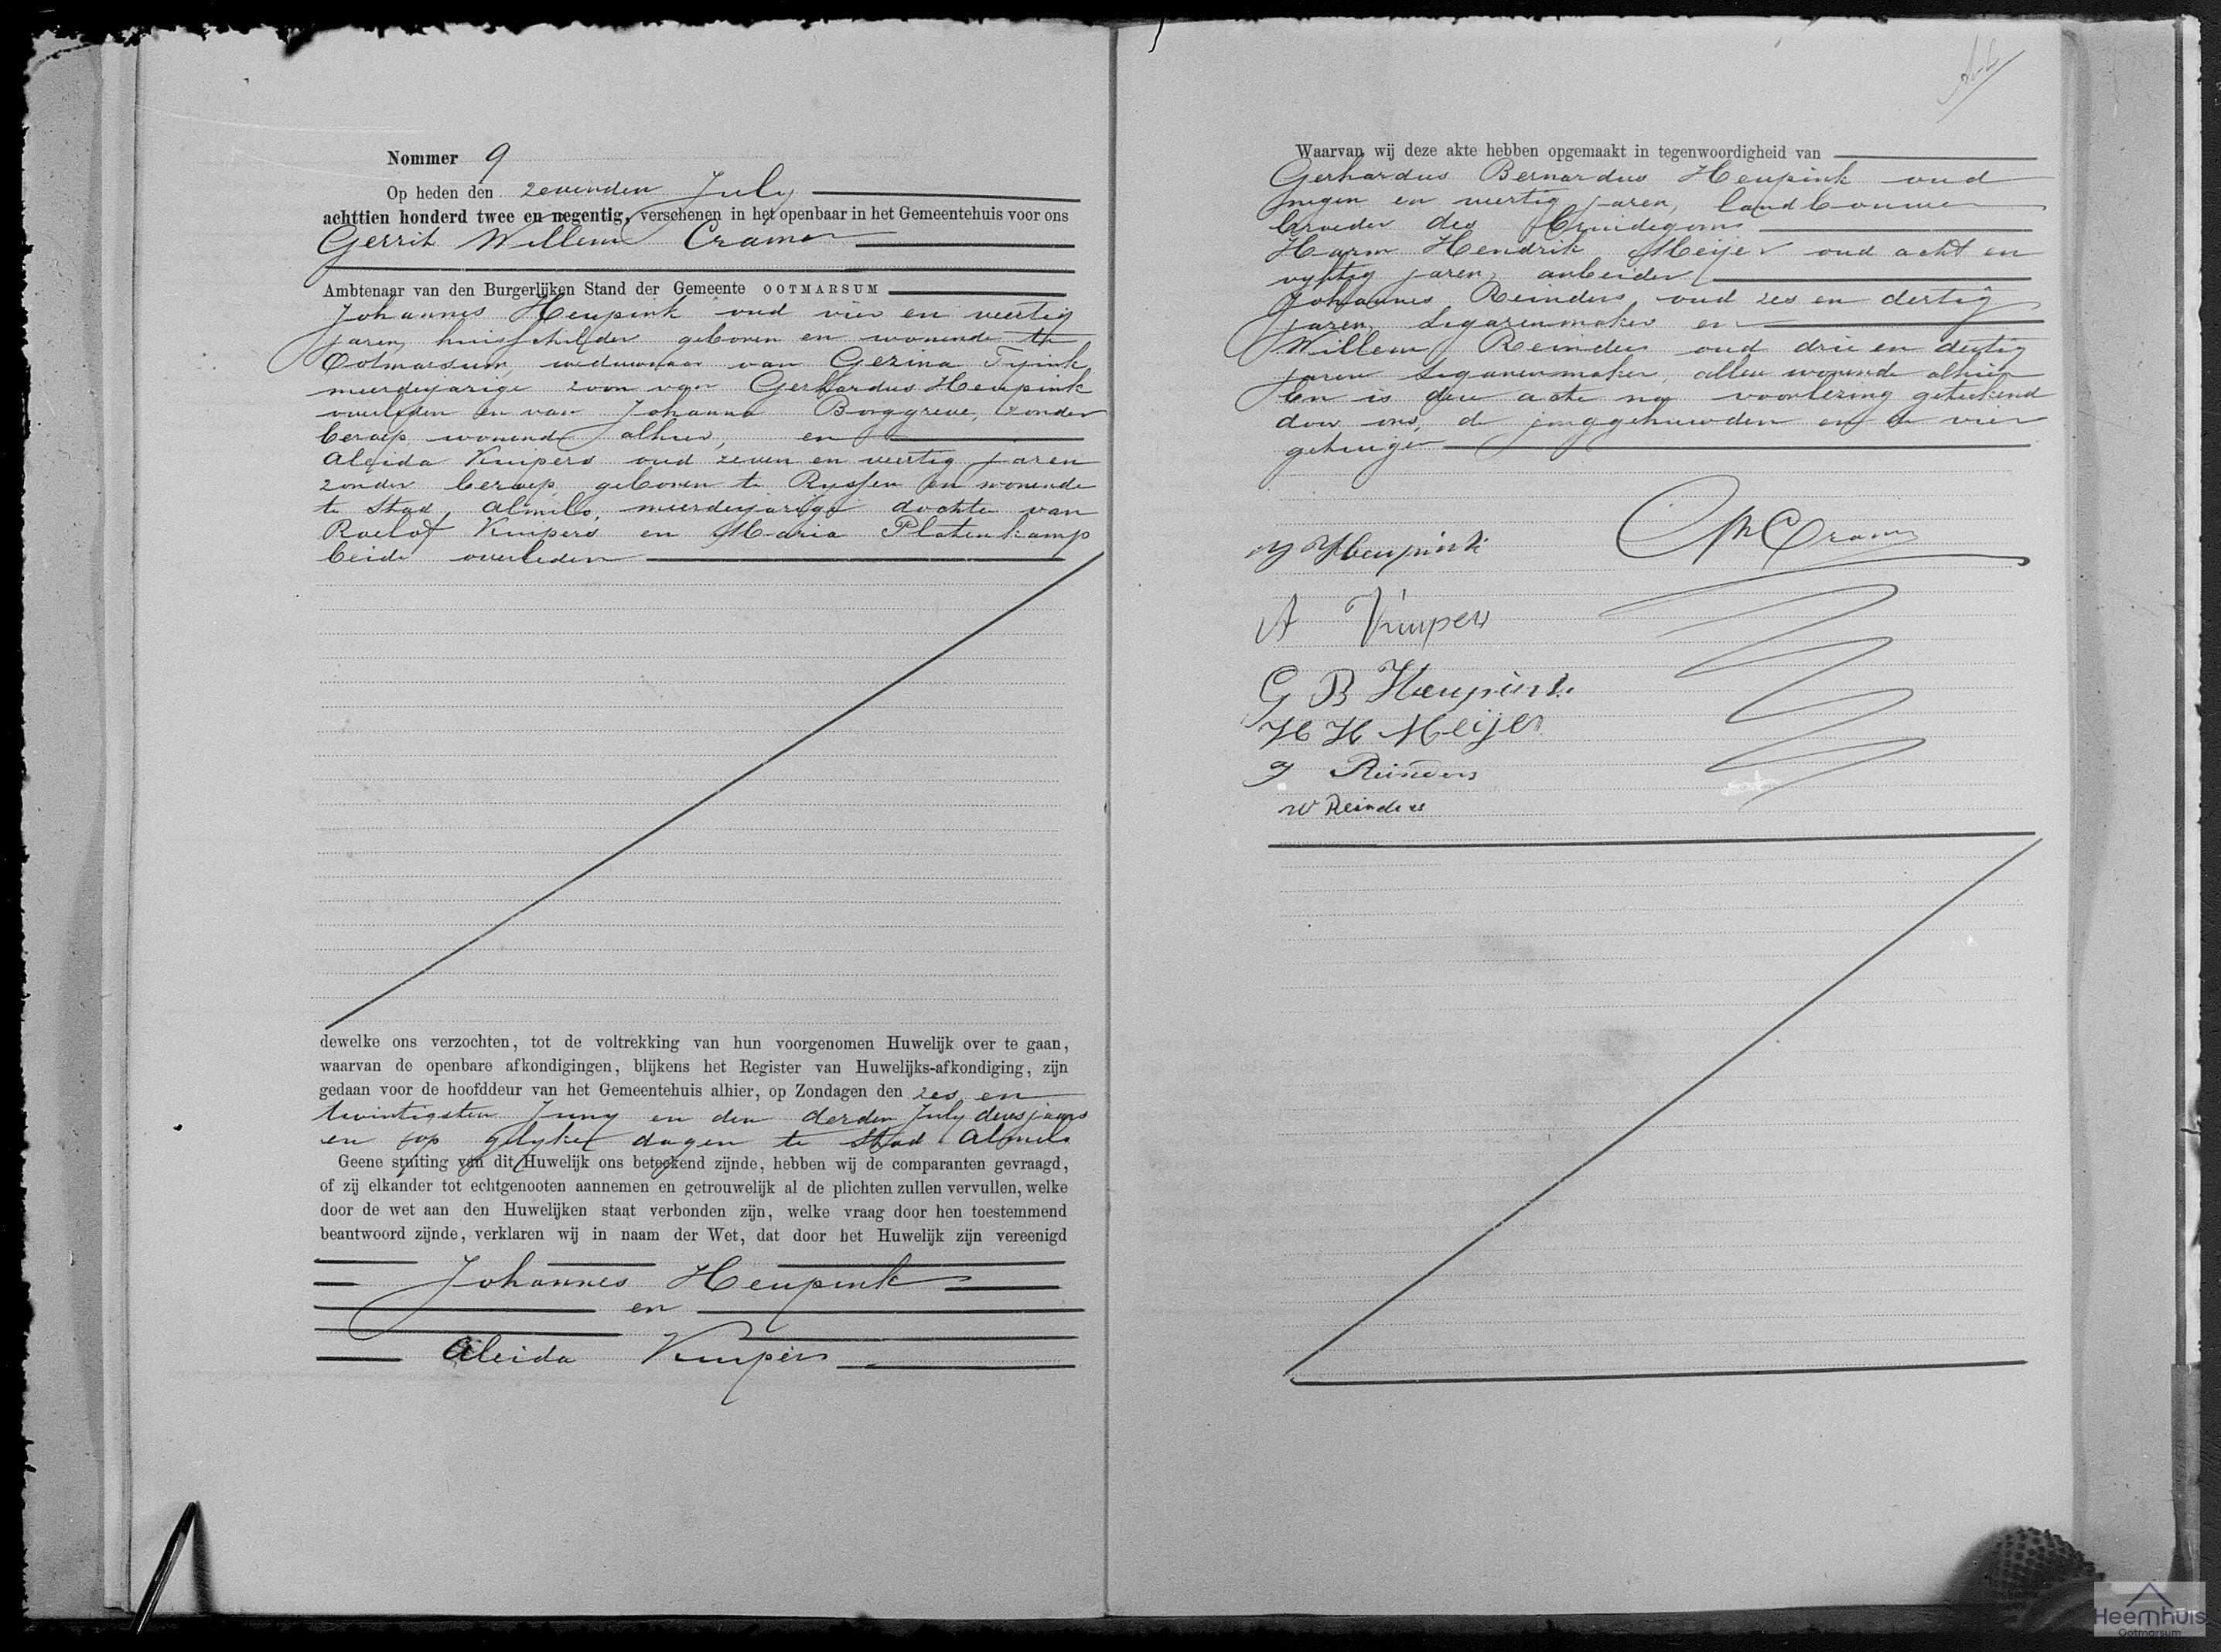 Nommer 9
Op heden den zevenden July
achttien honderd twee en negentig, verschenen in het openbaar in het Gemeentehuis voor ons
Gerrit Willem Cramer
Ambtenaar van den Burgerlijken Stand der Gemeente OOTMARSUM
Johannes Heupink oud vier en veertig
jaren, huisschilder geboren en wonende te
Ootmarsum, weduwnaar van Gezina
meerderjarige zoon van Gerhardus Heupink
overleden en van Johanna Borggreve, zonder
beroep wonende alhier, en
Aleida Kuipers oud zeven en veertig jaren
zonder beroep geboren te Ryssen en wonende
te Stad Almelo, meerderjarige dochter van
Roelof Kuipers en Maria Platenkamp
beide overleden
dewelke ons verzochten, tot de voltrekking van hun voorgenomen Huwelijk over te gaan,
waarvan de openbare afkondigingen, blijkens het Register van Huwelijks-afkondiging, zijn
gedaan voor de hoofddeur van het Gemeentehuis alhier, op Zondagen den zes en
twintigsten Juny en den derden July dezes jaars
en op gelyke dagen te Stad Almelo
Geene stuiting van dit Huwelijk ons beteekend zijnde, hebben wij de comparanten gevraagd,
of zij elkander tot echtgenooten aannemen en getrouwelijk al de plichten zullen vervullen, welke
door de wet aan den Huwelijken staat verbonden zijn, welke vraag door hen toestemmend
beantwoord zijnde, verklaren wij in naam der Wet, dat door het Huwelijk zijn vereenigd
Johannes Heupink
en
Aleida Kuipers
Waarvan wij deze akte hebben opgemaakt in tegenwoordigheid van
Gerhardus Bernardus Heupink oud
negen en veertig jaren, landbouwer
broeder des Bruidegoms
Harm Hendrik Meijer oud acht en
vyftig jaren, arbeider
Johannes Reinders, oud zes en dertig
jaren, sigarenmaker en
Willem Reinders oud drie en dertig
jaren sigarenmaker, allen wonende alhier
En is deze acte na voorlezing geteekend
door ons, de jonggehuwden en de vier
getuigen
J Heupink
Cramer
A Kuipers
G B Heupink
H H Meijer
J Reinders
W Reinders
Heemhuis
Ootmarsum